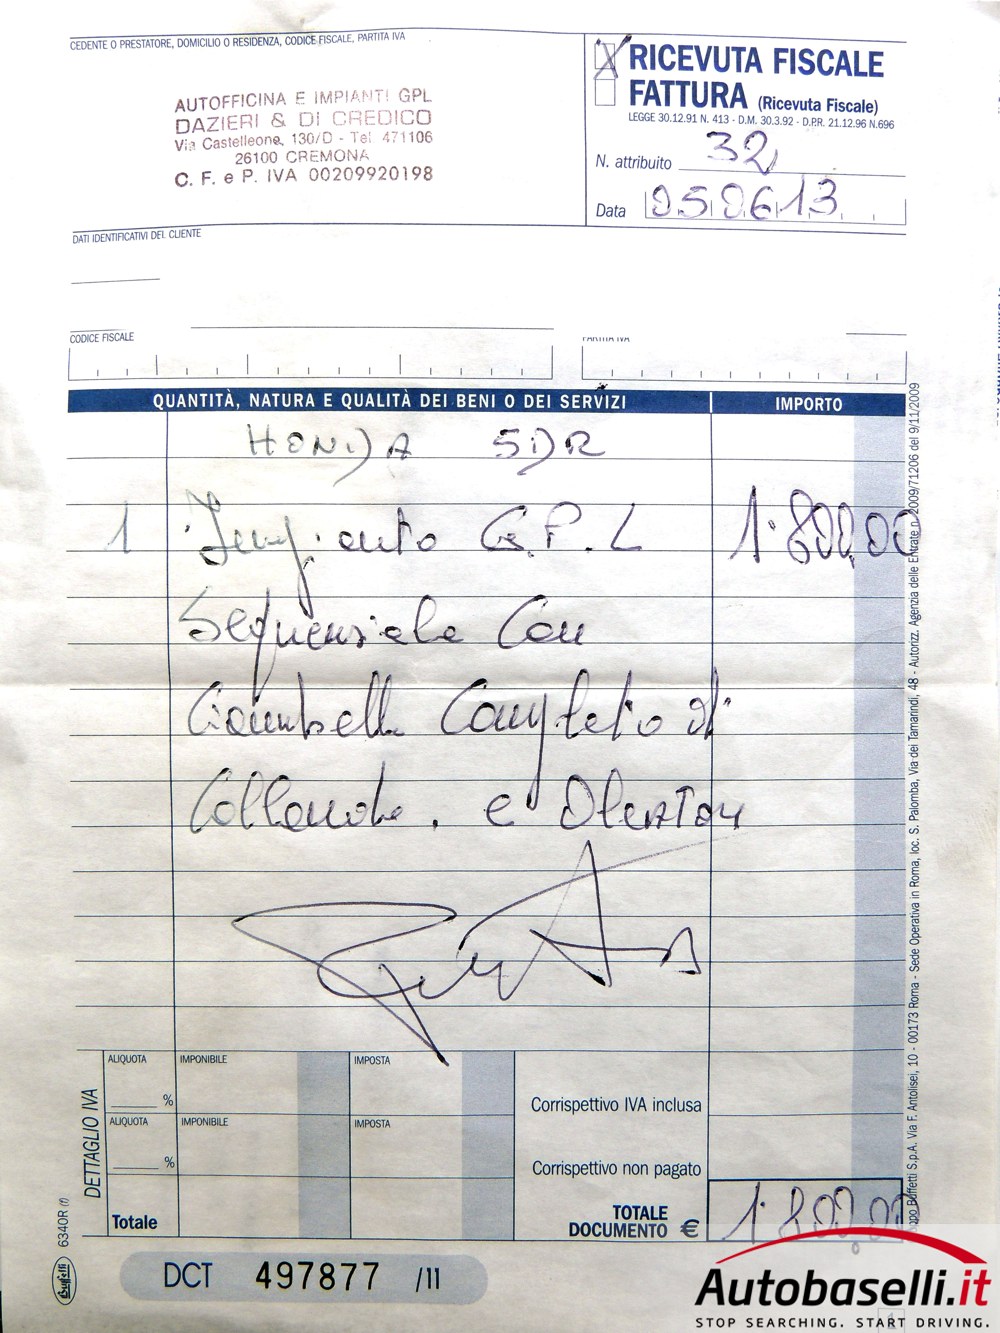 CEDENTE O PRESTATORE, DOMICILIO O RESIDENZA, CODICE FISCALE, PARTITA IVA
AUTOFFICINA E IMPIANTI GPL
DAZIERI & DI CREDICO
Via Castelleone, 130/D - Tel. 471106
26100 CREMONA
C. F. e P. IVA 00209920198
X RICEVUTA FISCALE
FATTURA (Ricevuta Fiscale)
LEGGE 30.12.91 N. 413 - D.M. 30.3.92 - D.P.R. 21.12.96 N.696
N. attribuito 32
Data 050613
DATI IDENTIFICATIVI DEL CLIENTE
CODICE FISCALE
PARTITA IVA
QUANTITÀ, NATURA E QUALITÀ DEI BENI O DEI SERVIZI IMPORTO
HONDA 5DR
1 Impianto G.P.L 1.800,00
Sequenziale Con
Ciambella Completo di
Collaudo. e
DETTAGLIO IVA
ALIQUOTA IMPONIBILE IMPOSTA
%
Corrispettivo IVA inclusa
ALIQUOTA IMPONIBILE IMPOSTA
%
Corrispettivo non pagato
Totale
TOTALE DOCUMENTO € 1.800,00
DCT 497877 /11
Buffetti 6340R (f)
Gruppo Buffetti S.p.A. Via F. Antolisei, 10 - 00173 Roma - Sede Operativa in Roma, loc. S. Palomba, Via dei Tamarindi, 48 - Autorizz. Agenzia delle Entrate n. 2009/71206 del 9/11/2009
Autobaselli.it
STOP SEARCHING. START DRIVING.